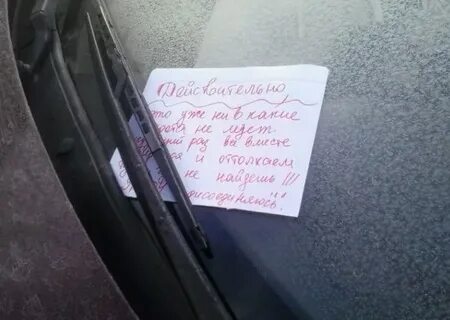 Действительно,
это уже ни в какие
не лезет.
раз вы вместе
и оттолкаем
не найдёшь!!!
присоединяюсь".